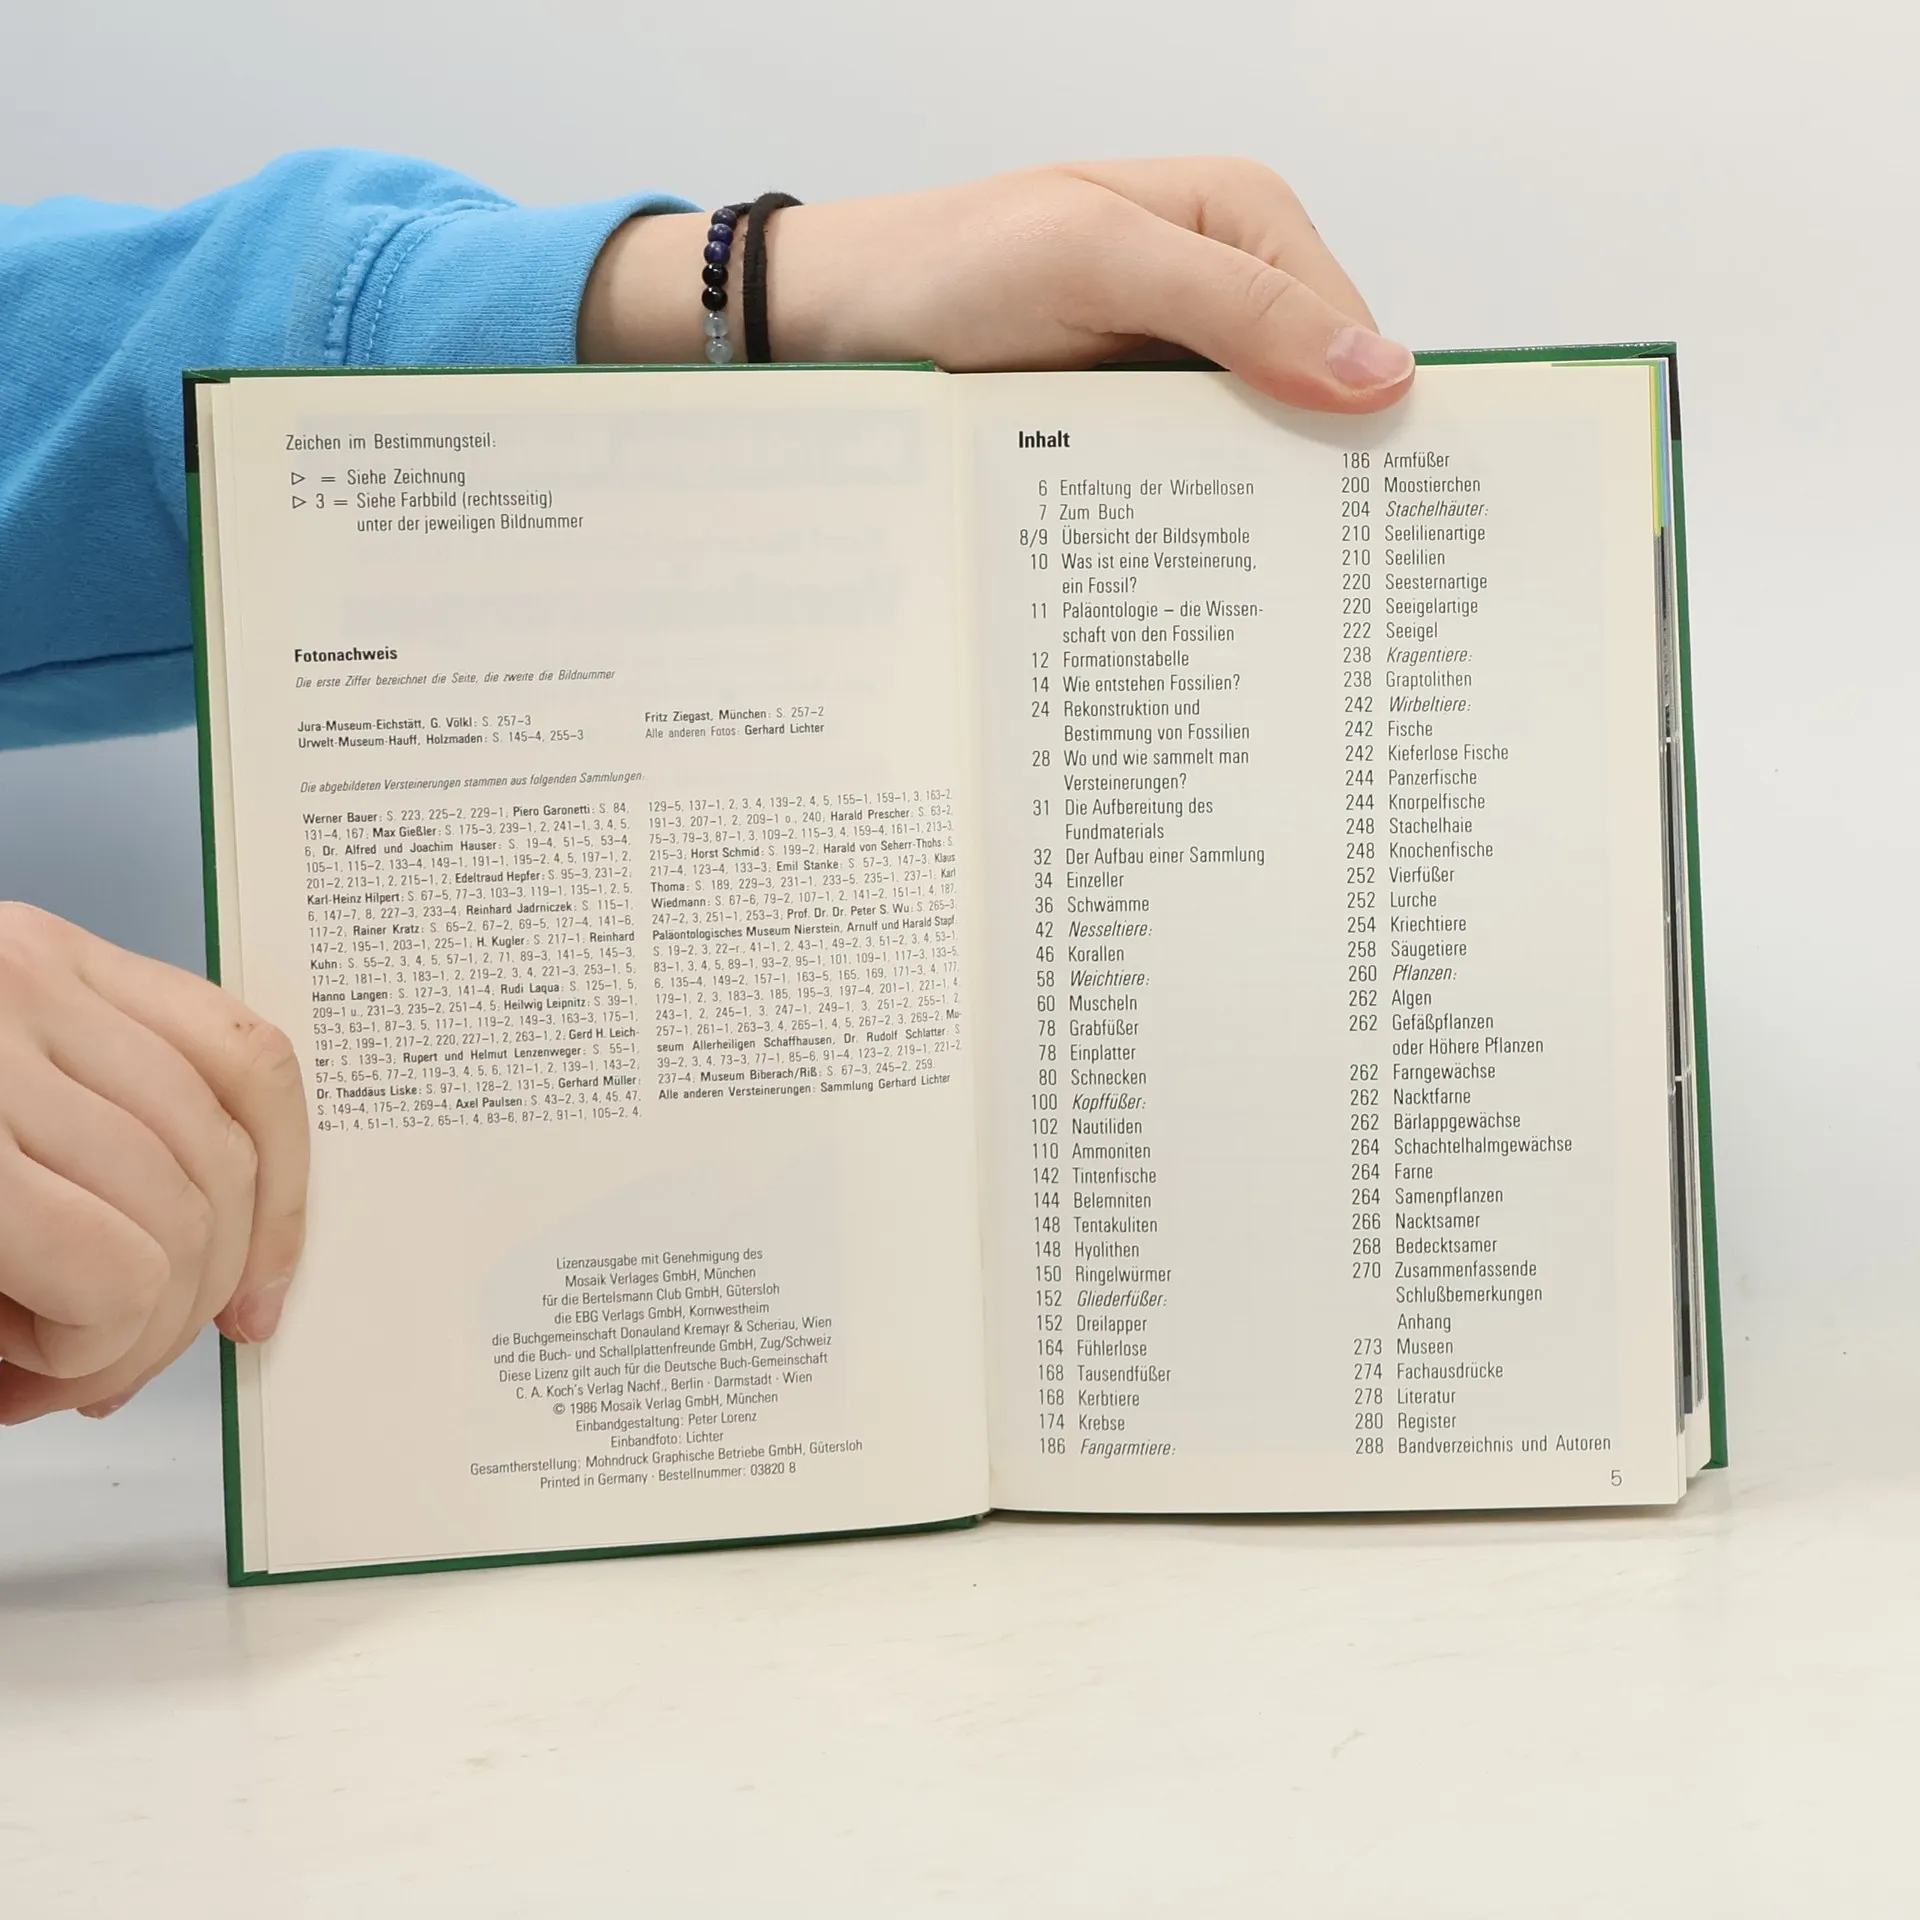 Zeichen im Bestimmungsteil:
▷ = Siehe Zeichnung
▷ 3 = Siehe Farbbild (rechtsseitig)
unter der jeweiligen Bildnummer
Fotonachweis
Die erste Ziffer bezeichnet die Seite, die zweite die Bildnummer
Jura-Museum-Eichstätt, G. Völkl: S. 257–3
Urwelt-Museum-Hauff, Holzmaden: S. 145–4, 255–3
Fritz Ziegast, München: S. 257–2
Alle anderen Fotos: Gerhard Lichter
Die abgebildeten Versteinerungen stammen aus folgenden Sammlungen:
Werner Bauer: S. 223, 225–2, 229–1; Piero Garonetti: S. 84,
131–4, 167; Max Gießler: S. 175–3, 239–1, 2, 241–1, 3, 4, 5,
6; Dr. Alfred und Joachim Hauser: S. 19–4, 51–5, 53–4,
105–1, 115–2, 133–4, 149–1, 191–1, 195–2, 4, 5, 197–1, 2,
201–2, 213–1, 2, 215–1, 2; Edeltraud Hepfer: S. 95–3, 231–2;
Karl-Heinz Hilpert: S. 67–5, 77–3, 103–3, 119–1, 135–1, 2, 5,
6, 147–7, 8, 227–3, 233–4; Reinhard Jadrniczek: S. 115–1,
117–2; Rainer Kratz: S. 65–2, 67–2, 69–5, 127–4, 141–6,
147–2, 195–1, 203–1, 225–1; H. Kugler: S. 217–1; Reinhard
Kuhn: S. 55–2, 3, 4, 5, 57–1, 2, 71, 89–3, 141–5, 145–3,
171–2, 181–1, 3, 183–1, 2, 219–2, 3, 4, 221–3, 253–1, 5;
Hanno Langen: S. 127–3, 141–4; Rudi Laqua: S. 125–1, 5,
209–1 u., 231–3, 235–2, 251–4, 5; Heilwig Leipnitz: S. 39–1,
53–3, 63–1, 87–3, 5, 117–1, 119–2, 149–3, 163–3, 175–1,
191–2, 199–1, 217–2, 220, 227–1, 2, 263–1, 2; Gerd H. Leich-
ter: S. 139–3; Rupert und Helmut Lenzenweger: S. 55–1,
57–5, 65–6, 77–2, 119–3, 4, 5, 6, 121–1, 2, 139–1, 143–2;
Dr. Thaddäus Liske: S. 97–1, 128–2, 131–5; Gerhard Müller:
S. 149–4, 175–2, 269–4; Axel Paulsen: S. 43–2, 3, 4, 45, 47,
49–1, 4, 51–1, 53–2, 65–1, 4, 83–6, 87–2, 91–1, 105–2, 4,
129–5, 137–1, 2, 3, 4, 139–2, 4, 5, 155–1, 159–1, 3, 163–2,
191–3, 207–1, 2, 209–1 o., 240; Harald Prescher: S. 63–2,
75–3, 79–3, 87–1, 3, 109–2, 115–3, 4, 159–4, 161–1, 213–3,
215–3; Horst Schmid: S. 199–2; Harald von Seherr-Thohs: S.
217–4, 123–4, 133–3; Emil Stanke: S. 57–3, 147–3; Klaus
Thoma: S. 189, 229–3, 231–1, 233–5, 235–1, 237–1; Karl
Wiedmann: S. 67–6, 79–2, 107–1, 2, 141–2, 151–1, 4, 187,
247–2, 3, 251–1, 253–3; Prof. Dr. Dr. Peter S. Wu: S. 265–3
Paläontologisches Museum Nierstein, Arnulf und Harald Stapf:
S. 19–2, 3, 22–r., 41–1, 2, 43–1, 49–2, 3, 51–2, 3, 4, 53–1,
83–1, 3, 4, 5, 89–1, 93–2, 95–1, 101, 109–1, 117–3, 133–5,
6, 135–4, 149–2, 157–1, 163–5, 165, 169, 171–3, 4, 177,
179–1, 2, 3, 183–3, 185, 195–3, 197–4, 201–1, 221–1, 4,
243–1, 2, 245–1, 3, 247–1, 249–1, 3, 251–2, 255–1, 2,
257–1, 261–1, 263–3, 4, 265–1, 4, 5, 267–2, 3, 269–2; Mu-
seum Allerheiligen Schaffhausen, Dr. Rudolf Schlatter: S.
39–2, 3, 4, 73–3, 77–1, 85–6, 91–4, 123–2, 219–1, 221–2,
237–4; Museum Biberach/Riß: S. 67–3, 245–2, 259.
Alle anderen Versteinerungen: Sammlung Gerhard Lichter
Lizenzausgabe mit Genehmigung des
Mosaik Verlages GmbH, München
für die Bertelsmann Club GmbH, Gütersloh
die EBG Verlags GmbH, Kornwestheim
die Buchgemeinschaft Donauland Kremayr & Scheriau, Wien
und die Buch- und Schallplattenfreunde GmbH, Zug/Schweiz
Diese Lizenz gilt auch für die Deutsche Buch-Gemeinschaft
C. A. Koch's Verlag Nachf., Berlin · Darmstadt · Wien
© 1986 Mosaik Verlag GmbH, München
Einbandgestaltung: Peter Lorenz
Einbandfoto: Lichter
Gesamtherstellung: Mohndruck Graphische Betriebe GmbH, Gütersloh
Printed in Germany · Bestellnummer: 03820 8
Inhalt
6 Entfaltung der Wirbellosen
7 Zum Buch
8/9 Übersicht der Bildsymbole
10 Was ist eine Versteinerung,
ein Fossil?
11 Paläontologie – die Wissen-
schaft von den Fossilien
12 Formationstabelle
14 Wie entstehen Fossilien?
24 Rekonstruktion und
Bestimmung von Fossilien
28 Wo und wie sammelt man
Versteinerungen?
31 Die Aufbereitung des
Fundmaterials
32 Der Aufbau einer Sammlung
34 Einzeller
36 Schwämme
42 Nesseltiere:
46 Korallen
58 Weichtiere:
60 Muscheln
78 Grabfüßer
78 Einplatter
80 Schnecken
100 Kopffüßer:
102 Nautiliden
110 Ammoniten
142 Tintenfische
144 Belemniten
148 Tentakuliten
148 Hyolithen
150 Ringelwürmer
152 Gliederfüßer:
152 Dreilapper
164 Fühlerlose
168 Tausendfüßer
168 Kerbtiere
174 Krebse
186 Fangarmtiere:
186 Armfüßer
200 Moostierchen
204 Stachelhäuter:
210 Seelilienartige
210 Seelilien
220 Seesternartige
220 Seeigelartige
222 Seeigel
238 Kragentiere:
238 Graptolithen
242 Wirbeltiere:
242 Fische
242 Kieferlose Fische
244 Panzerfische
244 Knorpelfische
248 Stachelhaie
248 Knochenfische
252 Vierfüßer
252 Lurche
254 Kriechtiere
258 Säugetiere
260 Pflanzen:
262 Algen
262 Gefäßpflanzen
oder Höhere Pflanzen
262 Farngewächse
262 Nacktfarne
262 Bärlappgewächse
264 Schachtelhalmgewächse
264 Farne
264 Samenpflanzen
266 Nacktsamer
268 Bedecktsamer
270 Zusammenfassende
Schlußbemerkungen
Anhang
273 Museen
274 Fachausdrücke
278 Literatur
280 Register
288 Bandverzeichnis und Autoren
5